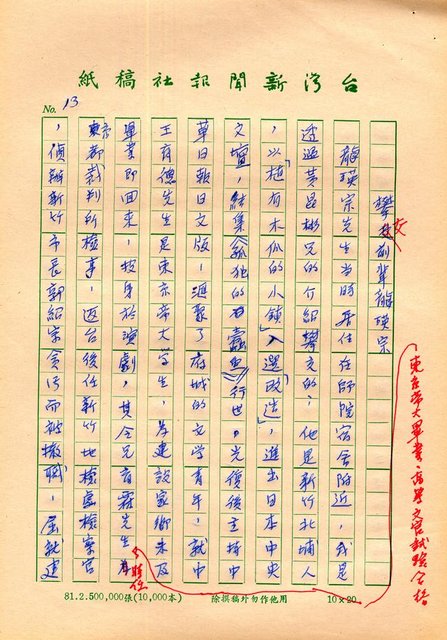 台灣新聞報社稿紙
No. 13
攀交前輩龍瑛宗
龍瑛宗先生當時居住在師院宿舍附近,我是
透過黃昆彬兄的介紹攀交的;他是新竹北埔人
,以「植有木瓜的小鎮」入選「改造」,進出日本中央
文壇,結集《孤獨的蠹魚》行世。光復後主持中
華日報日文版,滙聚了府城的文學青年,就中
王育德先生是東京帝大學生,為建設家鄉未及
畢業即回來,投身於演劇,其令兄育霖先生
東京帝大畢業,高等文官試驗合格
時任
東京都裁判所檢事,返台後任新竹地檢處檢察官
,偵辦新竹市長郭紹宗貪污而被撤職,屈就建
81.2.500,000張(10,000本)
除撰稿外勿作他用
10×20